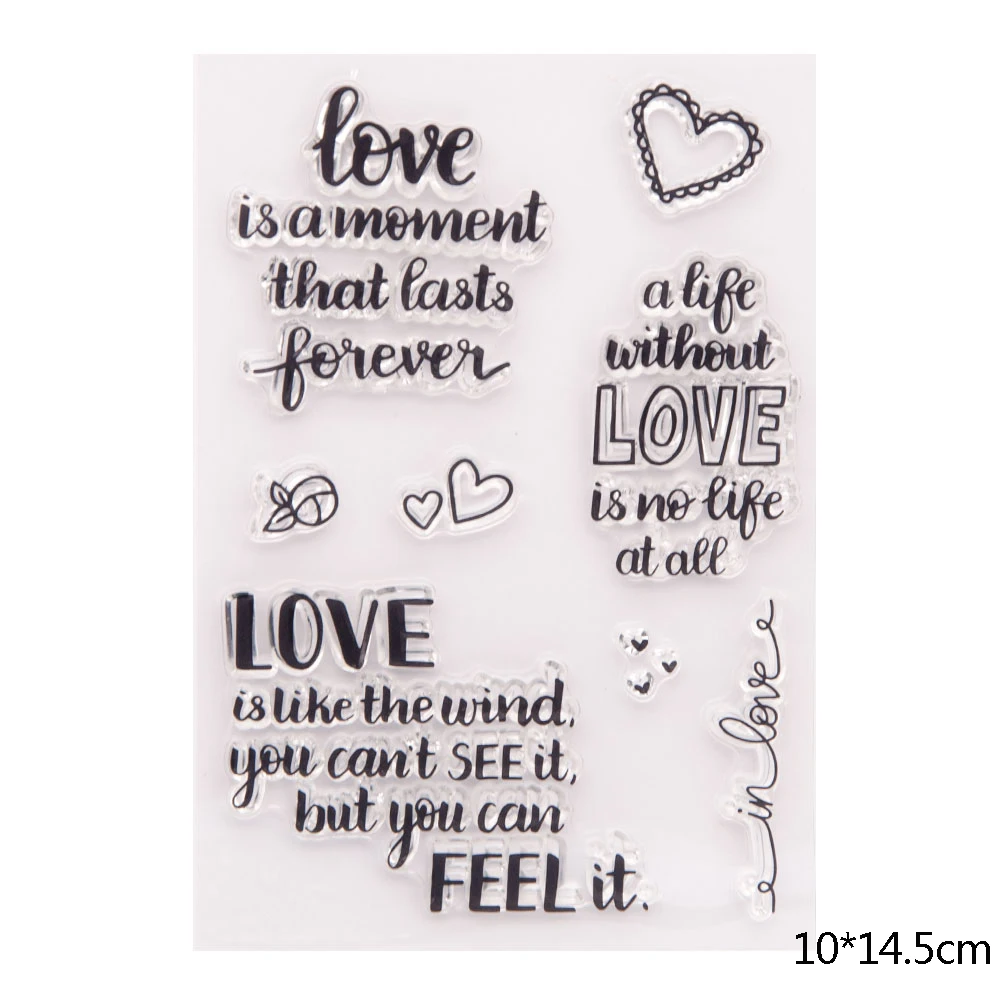 love
is a moment
that lasts
forever
a life
without
LOVE
is no life
at all
LOVE
is like the wind,
you can't SEE it,
but you can
FEEL it.
in love
10*14.5cm